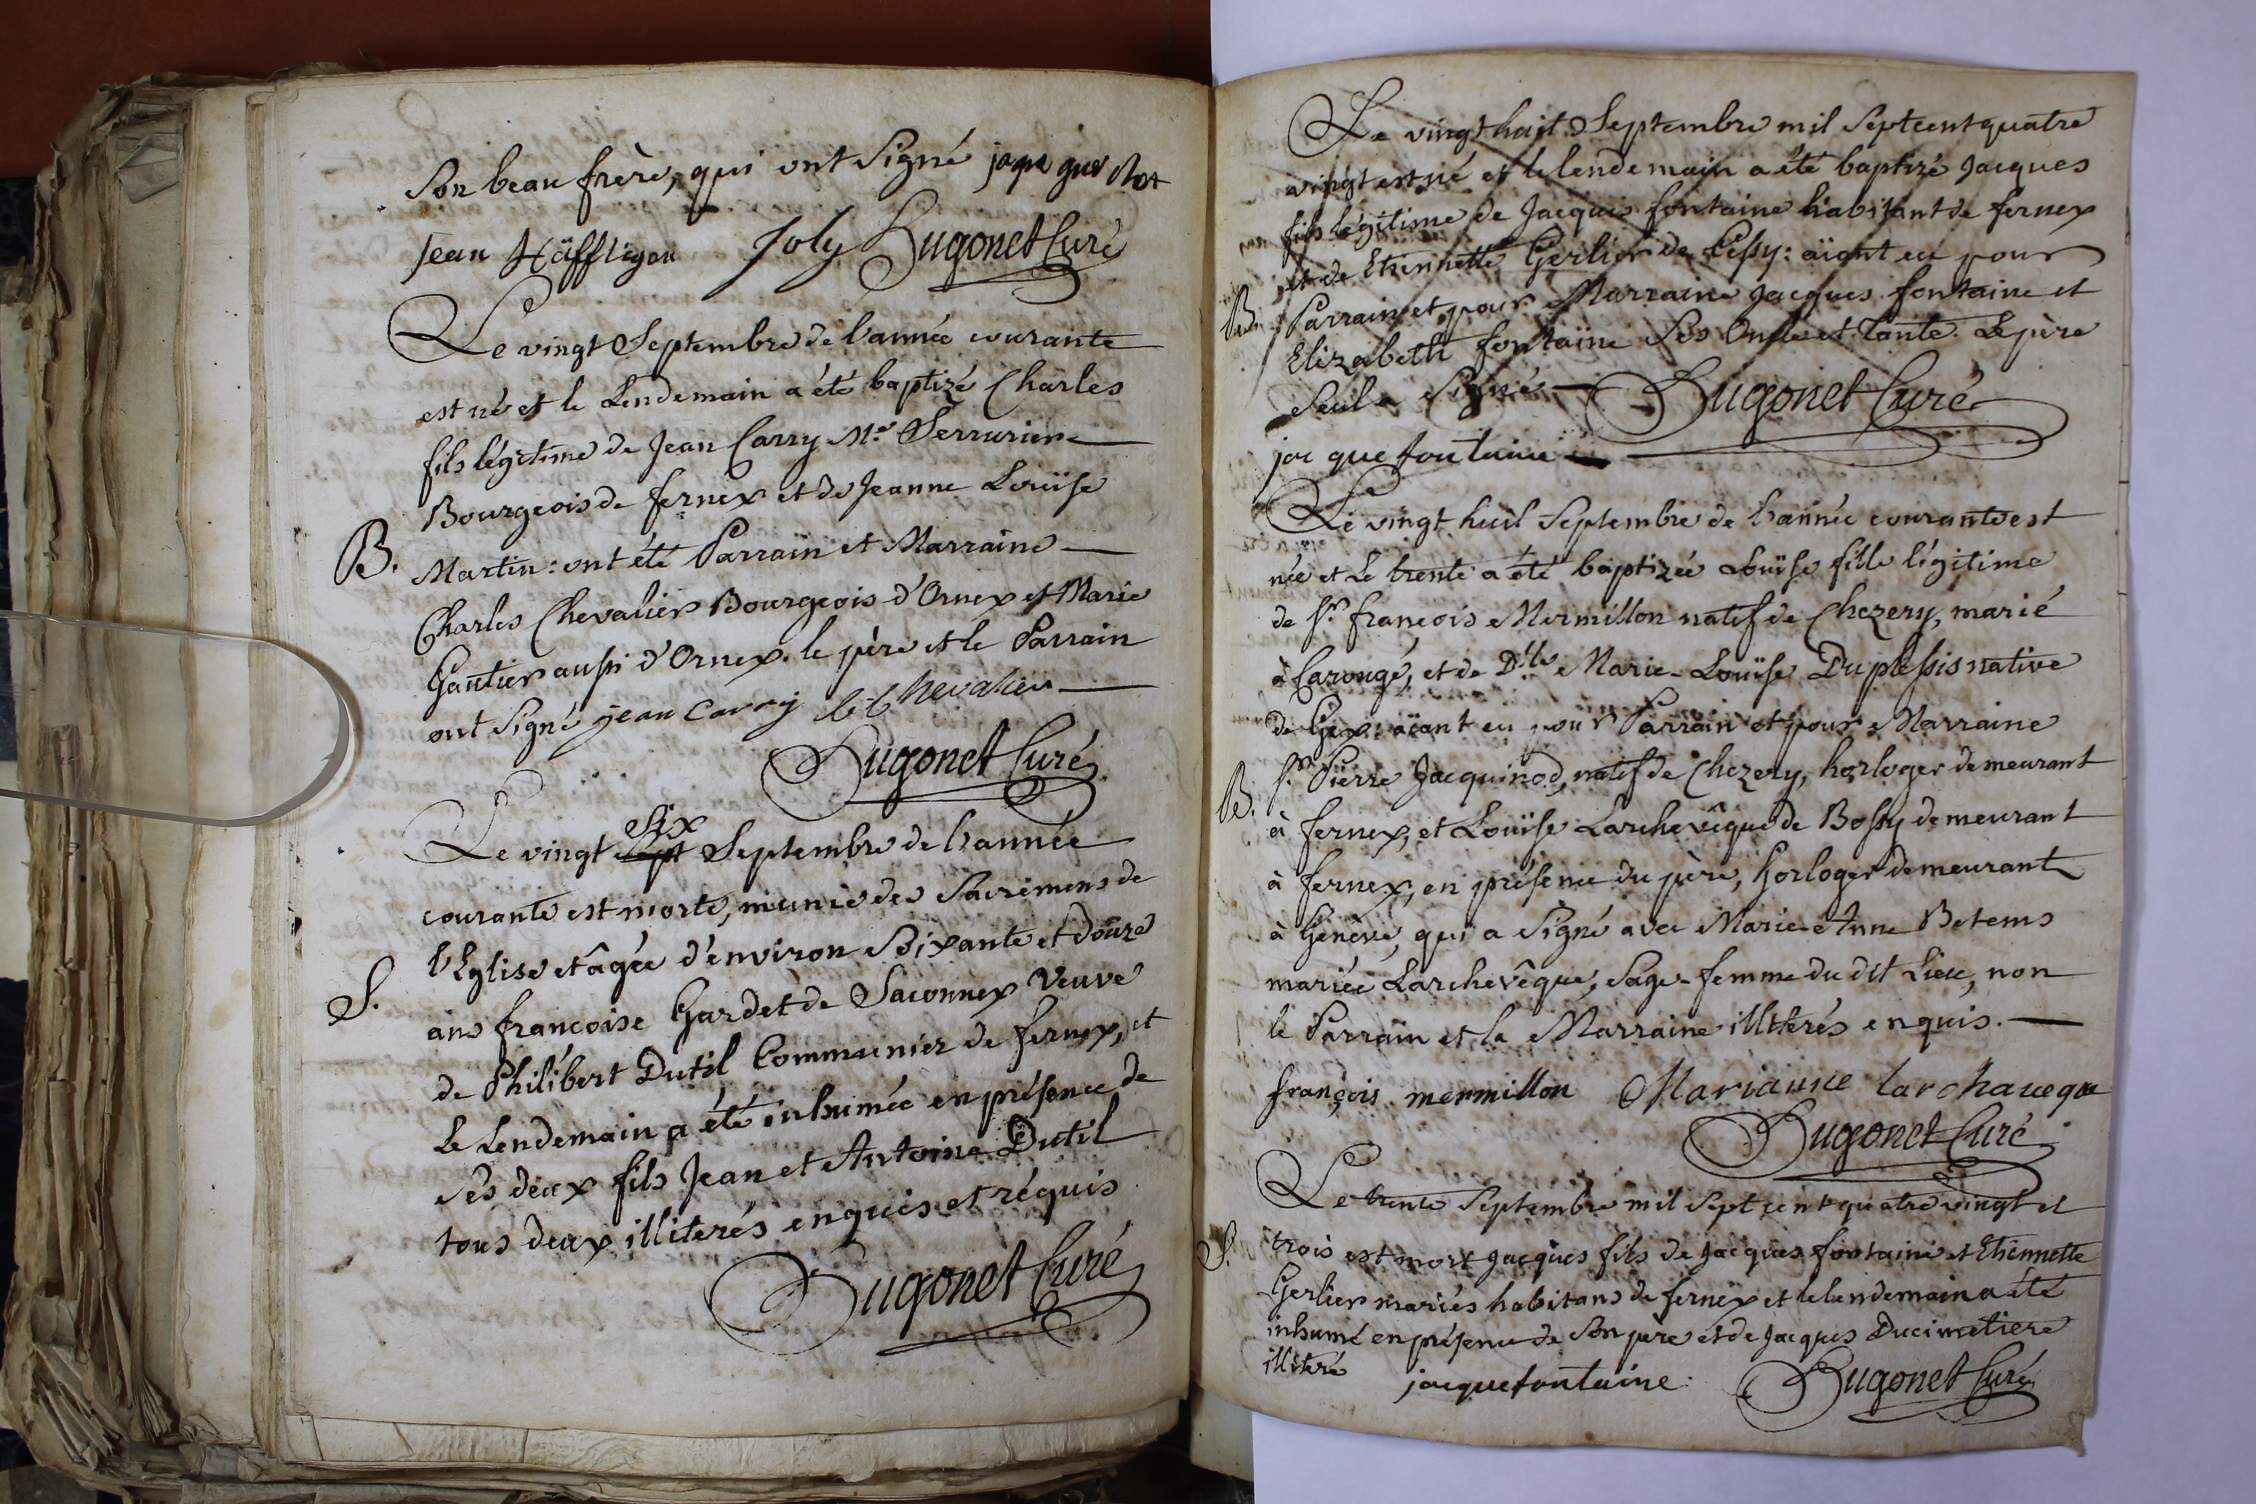 Son beau frère, qui ont Signé jaque
Jean Häffligon Joly Hugonet Curé
Le vingt Septembre de l'année courante
est né et le Lendemain a été baptizé Charles
fils légitime de Jean Carry Me Serrurier
Bourgeois de fernex et de Jeanne Louïse
B. Martin : ont été Parrain et Marraine
Charles Chevalier Bourgeois d'Ornex et Marie
Gautier aussi d'Ornex. le père et le Parrain
ont Signé jean Carry Chevalier
Hugonet Curé
Six
Le vingt Sept Septembre de l'année
courante est morte, munie des Sacremens de
l'Eglise et âgée d'environ Soixante et douze
S. ans françoise Gardet de Saconnex Veuve
de Philibert Dutil Communier de fernex, et
Le Lendemain a été inhumée en présence de
ses deux fils Jean et Antoine Dutil
tous deux illiterés enquis et réquis
Hugonet Curé
Le vingt huit Septembre mil Sept cent quatre
vingt est né et le lendemain a été baptizé Jacques
fils légitime de Jacques fontaine habitant de fernex
et de Etiennette Gerlier de Cessy : aïant eu pour
B. Parrain et pour Marraine Jacques fontaine et
Elizabeth fontaine Ses Oncle et Tante. Le père
Seul a Signé Hugonet Curé
jacque fontaine
Le vingt huit Septembre de l'année courante est
née et Le trente a été baptizée Louïse fille légitime
de Sr françois Mermillon natif de Chezery, marié
à Carouge, et de Dlle Marie-Louïse Duplessis native
de Gex : aïant eu pour Parrain et pour Marraine
Sr Pierre Jacquinod, natif de Chezery, horloger demeurant
B. à fernex, et Louïse Larchevêque de Bossy demeurant
à fernex, en présence du père, horloger demeurant
à Genève, qui a Signé avec Marie-Anne Betems
mariée Larchevêque, Sage-femme du dit Lieu, non
le Parrain et la Marraine illiterés enquis.
françois mermillon Marianne larchaueque
Hugonet Curé
Le trente Septembre mil Sept cent quatre vingt et
S. trois est mort Jacques fils de Jacques fontaine et Etiennette
Gerlier mariés habitans de fernex et le lendemain a été
inhumé en présence de Son père et de Jacques Ducimetiere
illiteré jacque fontaine. Hugonet Curé